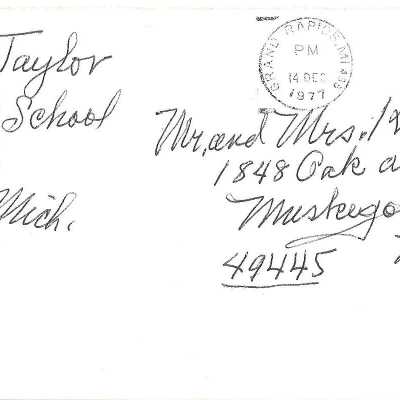 Taylor
School
Mich.
GRAND RAPIDS, MI
PM
14 DEC
1977
Mr. and Mrs.
1848 Oak
Muskego
49445